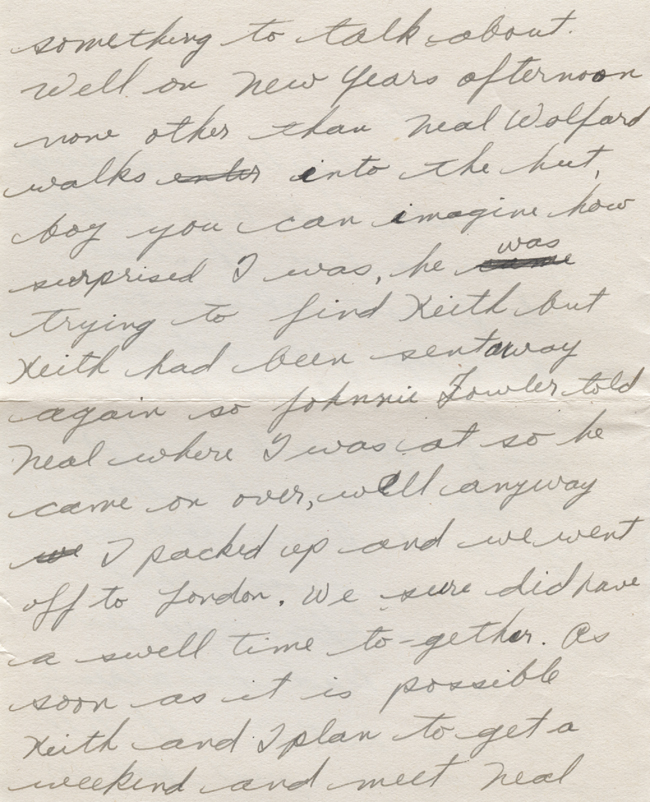 something to talk about.
Well on New Years afternoon
none other than Neal Wolfard
walks enter into the hut,
boy you can imagine how
surprised I was, he came was
trying to find Keith but
Keith had been sent away
again so Johnnie Fowler told
Neal where I was at so he
came on over, well anyway
we I packed up and we went
off to London. We sure did have
a swell time to-gether. As
soon as it is possible
Keith and I plan to get a
weekend and meet Neal